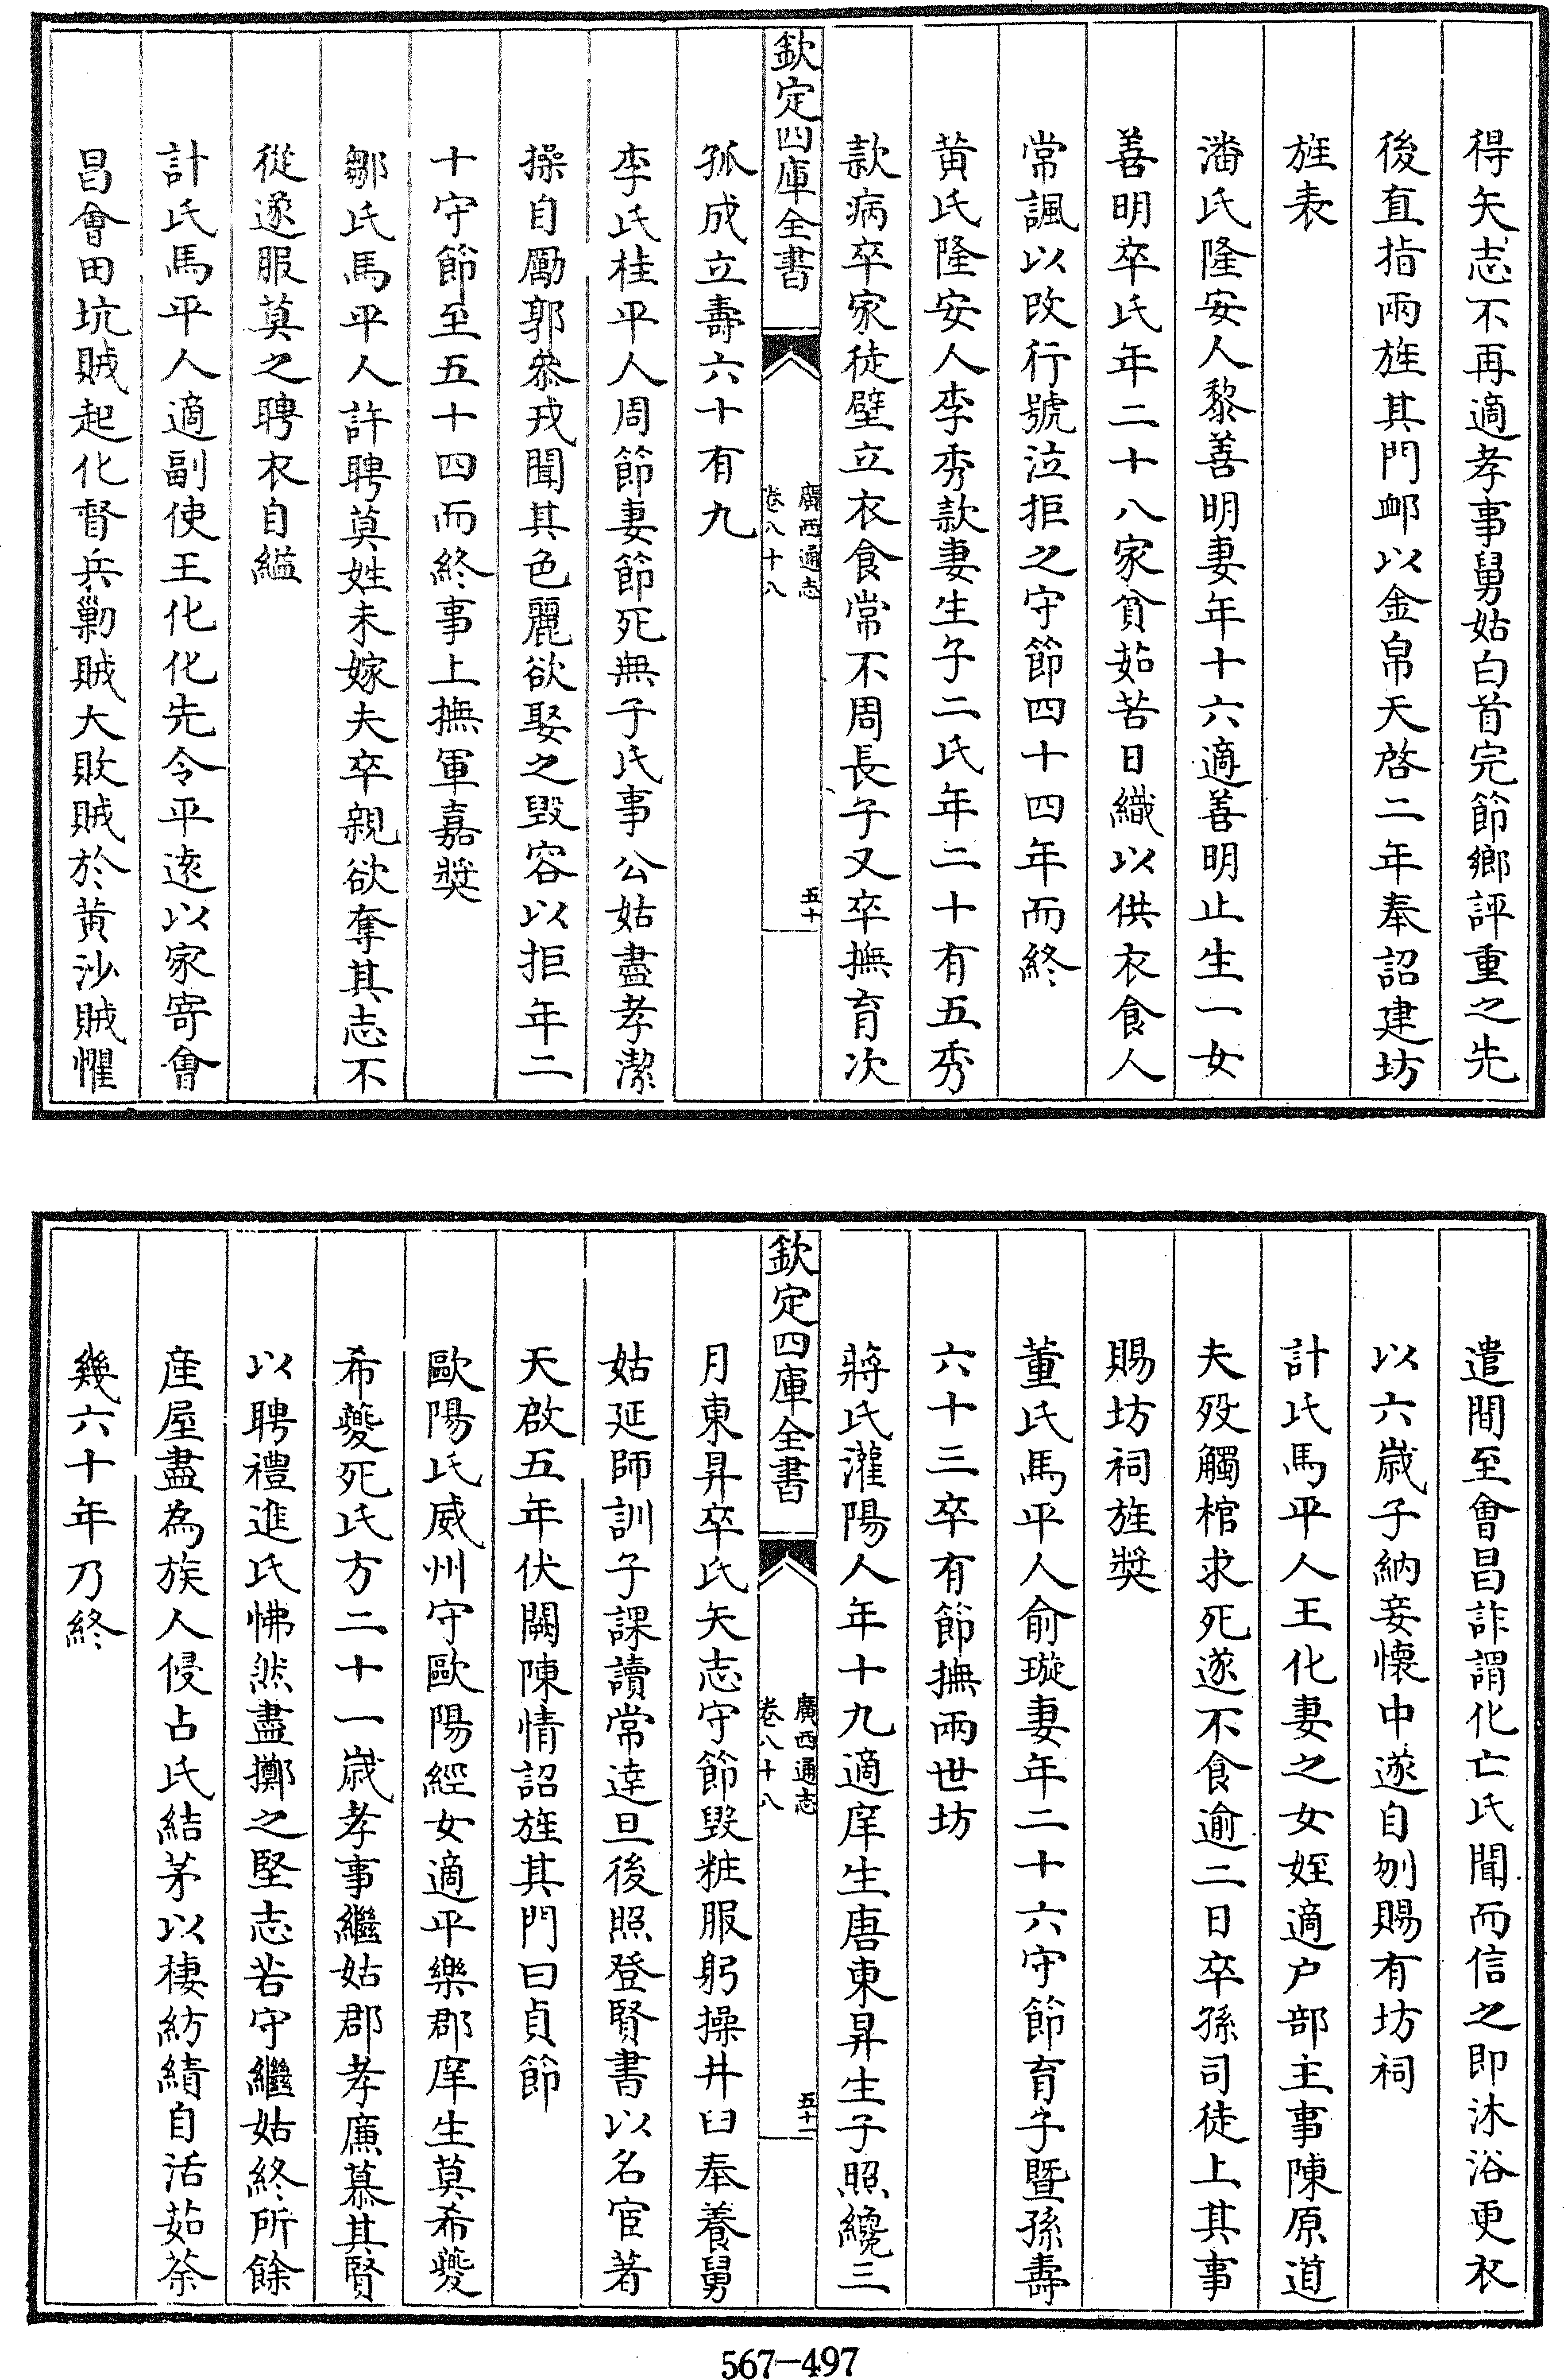 得矢志不再適孝事舅姑白首完節鄉評重之先
後直指兩旌其門䘏以金帛天啓二年奉詔建坊
旌表
潘氏隆安人黎善明妻年十六適善明止生一女
善明卒氏年二十八家貧茹苦日織以供衣食人
常諷以改行號泣拒之守節四十四年而終
黄氏隆安人李秀款妻生子二氏年二十有五秀
款病卒家徒壁立衣食常不周長子又卒撫育次
欽定四庫全書
廣西通志
卷八十八
五十
孤成立壽六十有九
李氏桂平人周節妻節死無子氏事公姑盡孝潔
操自勵郭叅戎聞其色麗欲娶之毁容以拒年二
十守節至五十四而終事上撫軍嘉奬
鄒氏馬平人許聘莫姓未嫁夫卒親欲奪其志不
從遂服莫之聘衣自縊
計氏馬平人適副使王化化先令平逺以家寄會
昌會田坑賊起化督兵勦賊大敗賊於黄沙賊懼
遣間至會昌詐謂化亡氏聞而信之即沐浴更衣
以六歳子納妾懐中遂自刎賜有坊祠
計氏馬平人王化妻之女姪適户部主事陳原道
夫殁觸棺求死遂不食逾二日卒孫司徒上其事
賜坊祠旌奬
董氏馬平人俞璇妻年二十六守節育子暨孫壽
六十三卒有節撫兩世坊
蔣氏灌陽人年十九適庠生唐東昇生子照纔三
欽定四庫全書
廣西通志
卷八十八
五十一
月東昇卒氏矢志守節毁粧服躬操井臼奉養舅
姑延師訓子課讀常逹旦後照登賢書以名宦著
天啟五年伏闕陳情詔旌其門曰貞節
歐陽氏威州守歐陽經女適平樂郡庠生莫希夔
希夔死氏方二十一歳孝事繼姑郡孝廉慕其賢
以聘禮進氏怫然盡擲之堅志若守繼姑終所餘
産屋盡為族人侵占氏結茅以棲紡績自活茹荼
幾六十年乃終
567-497